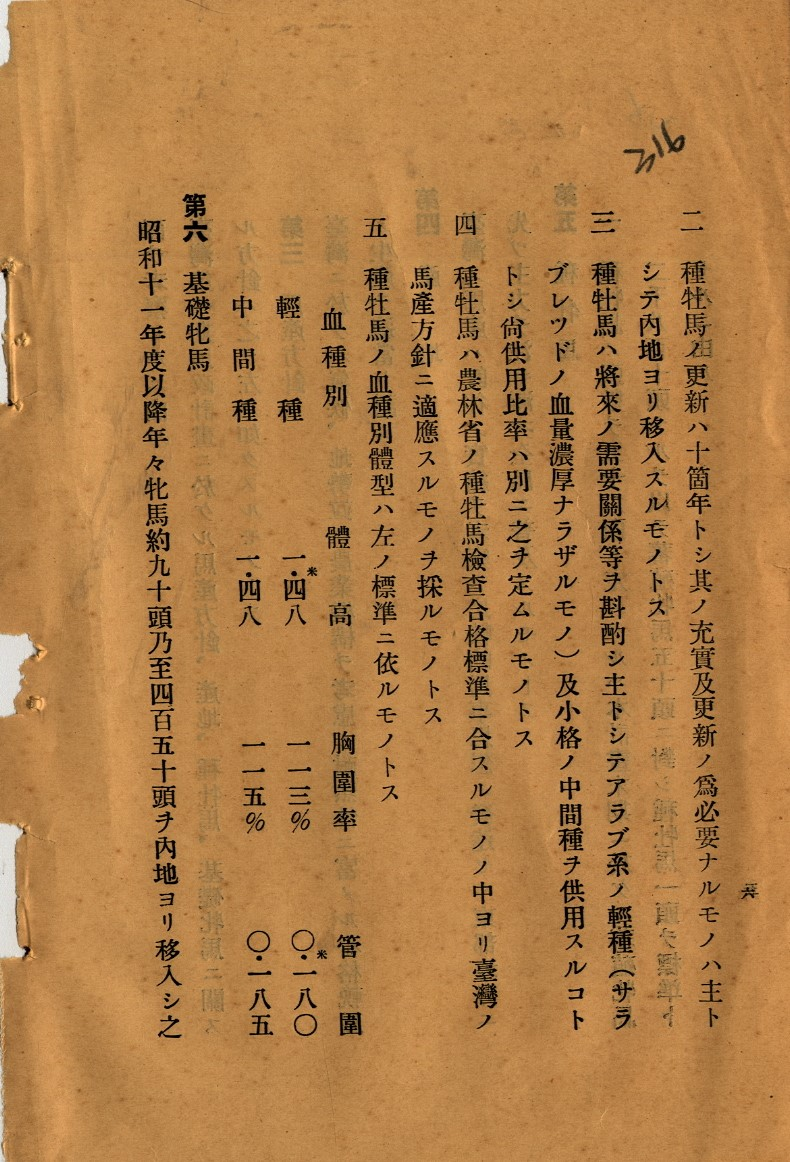 二 種牡馬ノ更新ハ十箇年トシ其ノ充實及更新ノ爲必要ナルモノハ主ト
シテ內地ヨリ移入スルモノトス
三 種牡馬ハ將來ノ需要關係等ヲ斟酌シ主トシテアラブ系ノ輕種(サラ
ブレッドノ血量濃厚ナラザルモノ)及小格ノ中間種ヲ供用スルコト
トシ尙供用比率ハ別ニ之ヲ定ムルモノトス
四 種牡馬ハ農林省ノ種牡馬檢查合格標準ニ合スルモノノ中ヨリ臺灣ノ
馬產方針ニ適應スルモノヲ採ルモノトス
五 種牡馬ノ血種別體型ハ左ノ標準ニ依ルモノトス
血種別 體高 胸圍率 管圍
輕種 一・四八米 一一三% 〇・一八〇米
中間種 一・四八 一一五% 〇・一八五
第六 基礎牝馬
昭和十一年度以降年々牝馬約九十頭乃至四百五十頭ヲ內地ヨリ移入シ之